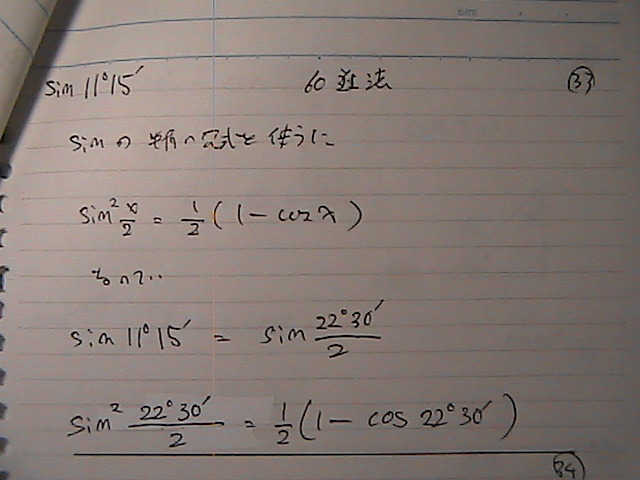 DATE
sin 11°15′ 60進法 (33)
sinの半角の公式を使うに
sin² x/2 = 1/2 (1 - cos x)
なので‥
sin 11°15′ = sin 22°30′/2
sin² 22°30′/2 = 1/2 (1 - cos 22°30′)
(34)